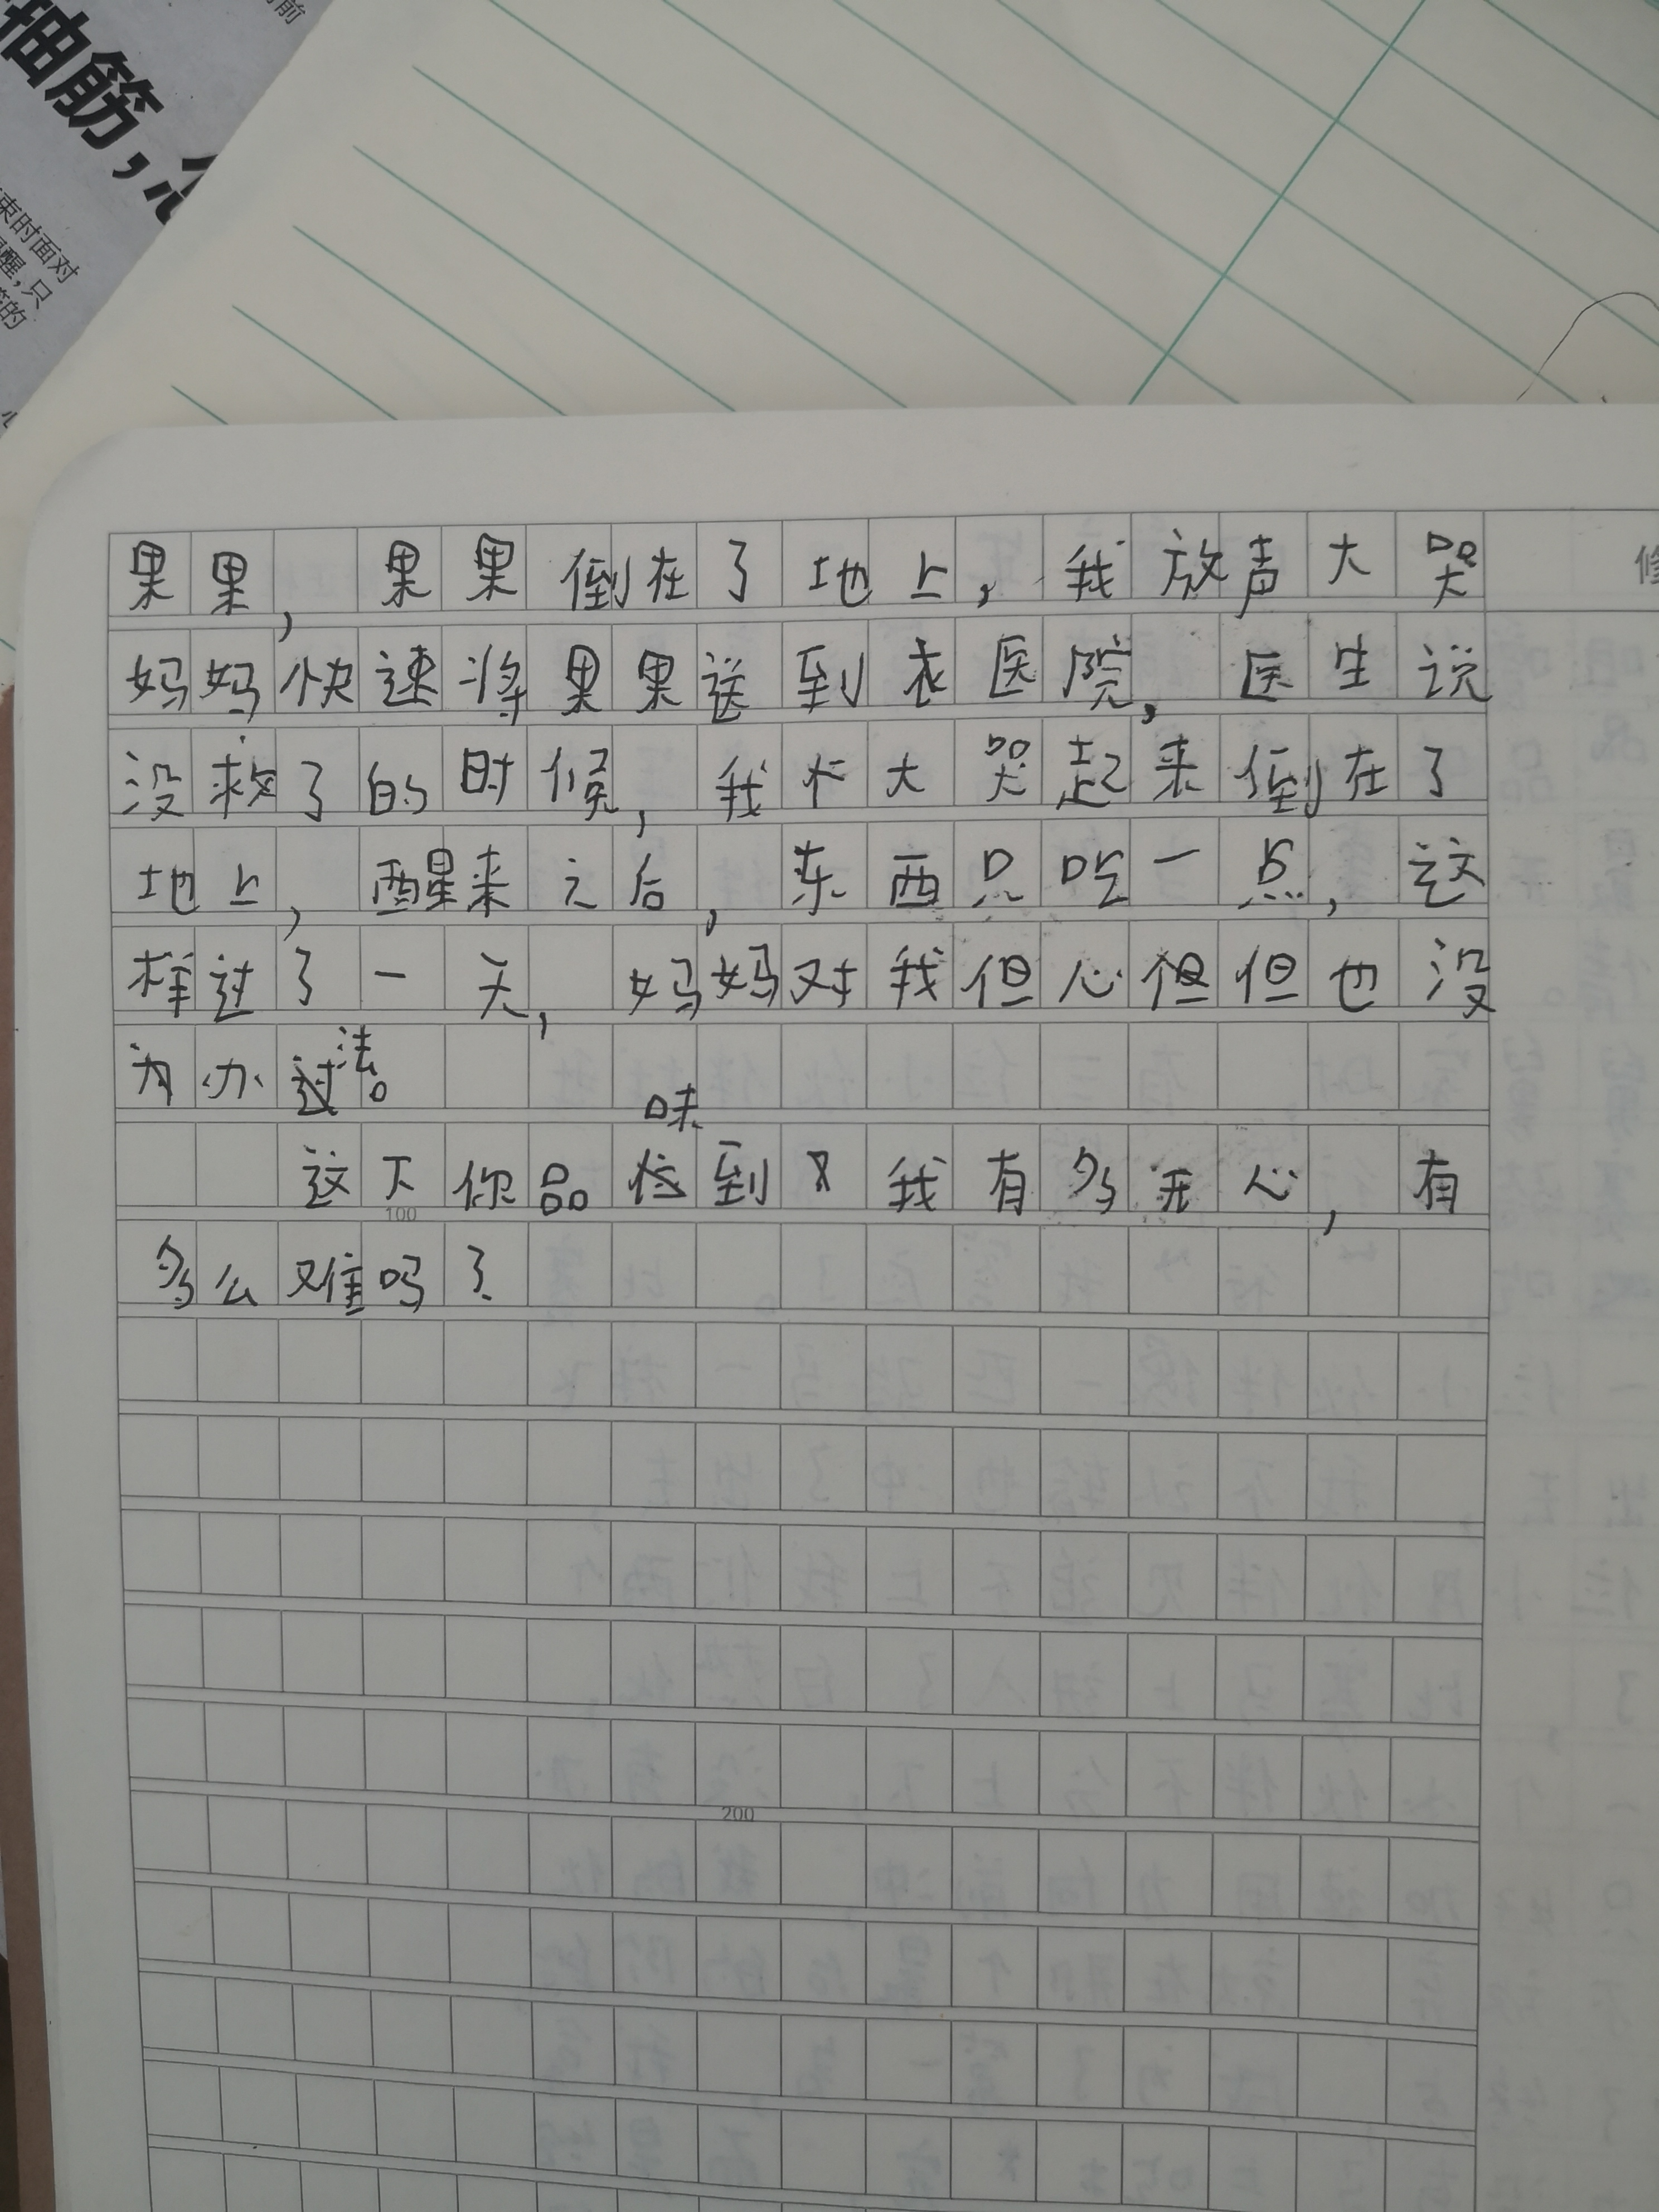 抽筋，
束时面对
醒，只
的
修
果果，果果倒在了地上，我放声大哭
妈妈快速将果果送到衣医院，医生说
没救了的时候，我大大哭起来倒在了
地上，醒来之后，东西只吃一点，这
样过了一天，妈妈对我但心但但也没
为办过法。
味
这下你品尝到又我有多开心，有
100
多么难吗？
200